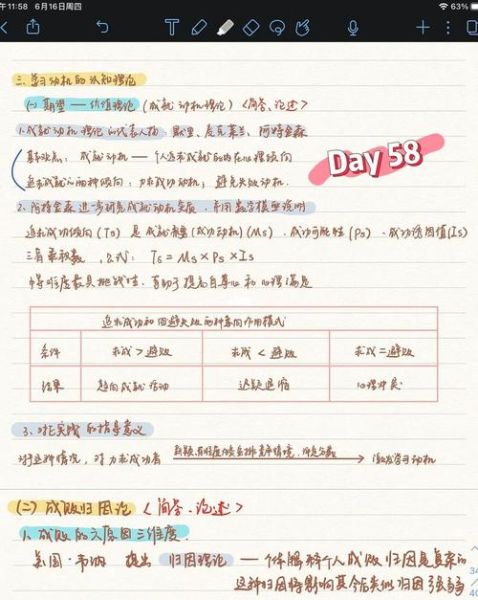 午11:58 6月16日周四 63%
三、学习动机的认知理论
(一) 期望——价值理论(成就动机理论)<简答、论述>
1.成就动机理论的代表人物:默里、麦克莱兰、阿特金森
基本观点:成就动机——个人追求成就的内在心理倾向
Day 58
追求成就的两种倾向:力求成功动机;避免失败动机.
2.阿特金森进一步研究成就动机实质,并用数学模型说明
追求成功倾向(Ts)是成就需要(成功动机)(Ms)、成功可能性(Ps)、成功诱因值(Is)
三者乘积数,公式:Ts=Ms×Ps×Is
中等难度最具挑战性,有助于提高自尊心和心理满足
追求成功和回避失败的种意向作用模式
条件 求成>避败 求成<避败 求成=避败
结果 趋向成就活动 迟疑退缩 心理冲突
3、对实践的指导意义
对这种情况,对力求成功者 激发学习动机
(二)成败归因论<简答、论述>
1.成败的六原因三维度.
美国·韦纳 提出 归因理论——个体解释个人成败归因是复杂的
这种归因将影响其今后类似归因
34
40